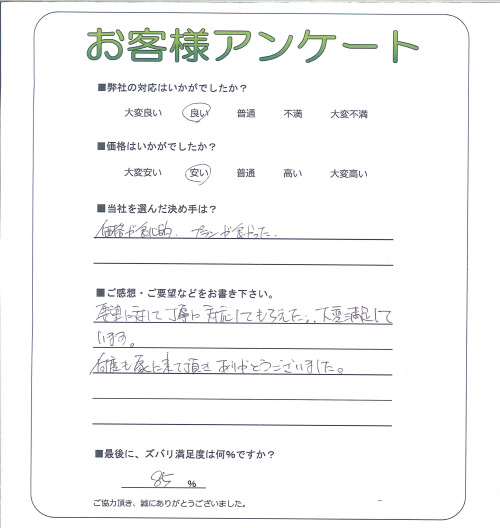 お客様アンケート
■弊社の対応はいかがでしたか？
大変良い 良い 普通 不満 大変不満
■価格はいかがでしたか？
大変安い 安い 普通 高い 大変高い
■当社を選んだ決め手は？
価格が 的、プランが良かった。
■ご感想・ご要望などをお書き下さい。
要望に対して丁寧に対応してもらえた。大変満足して
います。
何度も家に来て頂きありがとうございました。
■最後に、ズバリ満足度は何％ですか？
85 ％
ご協力頂き、誠にありがとうございました。